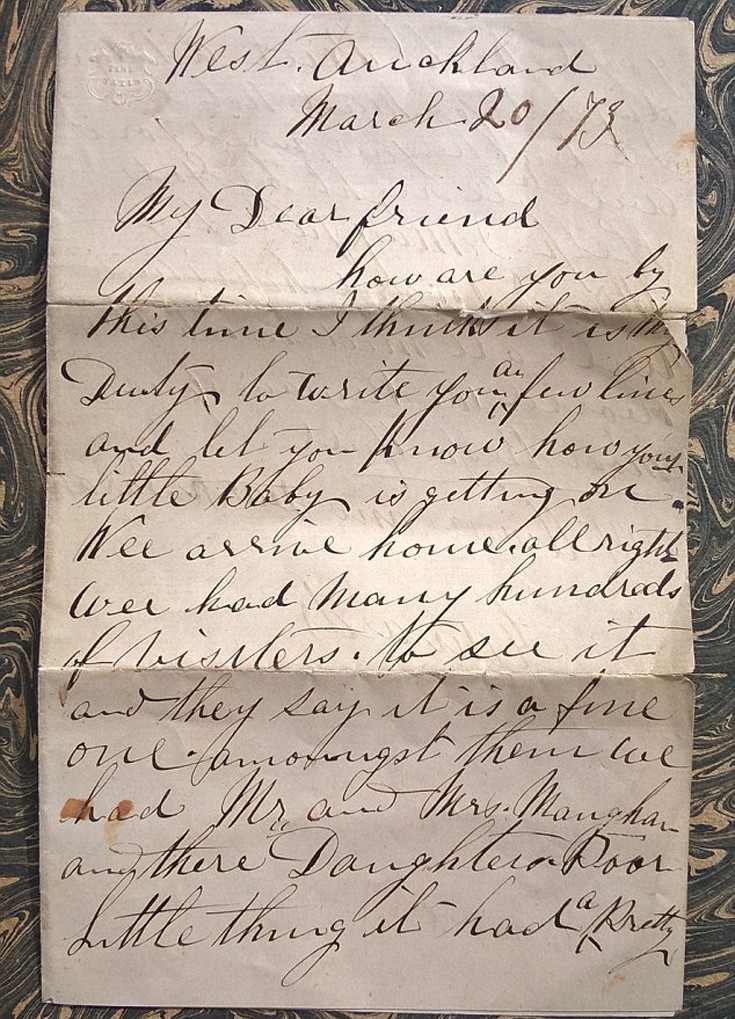 West. Auckland
March 20/73
My Dear friend
how are you by
this time I think it is my
Duuty to write you a few lines
and let you know how your
little Baby is getting on.
Wee arrive home all right
wee had many hundreds
of visiters. to see it
and they say it is a fine
one. amoungst them we
had Mr and Mrs. Maughan
and there Daughters Poor
Little thing it had a Pretty